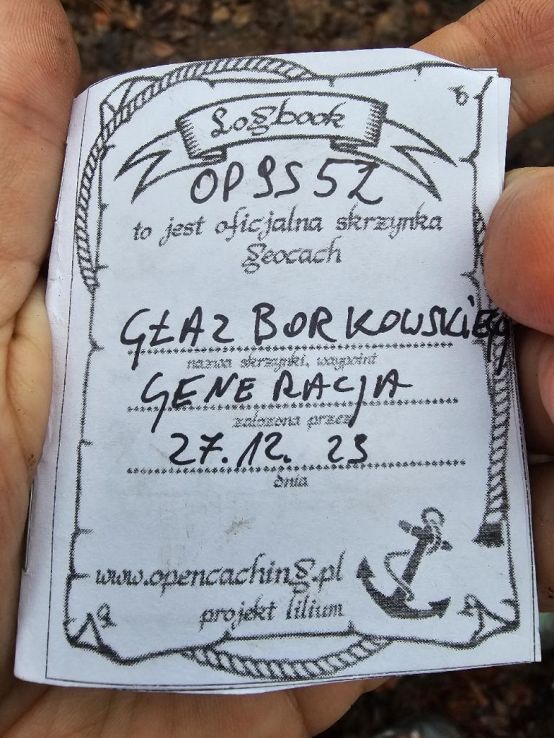 Logbook
OP9S5Z
to jest oficjalna skrzynka
geocach
GŁAZ BORKOWSKIEGO
nazwa skrzynki, waypoint
GENERACJA
założona przez
27.12.23
dnia
www.opencaching.pl
projekt lilium